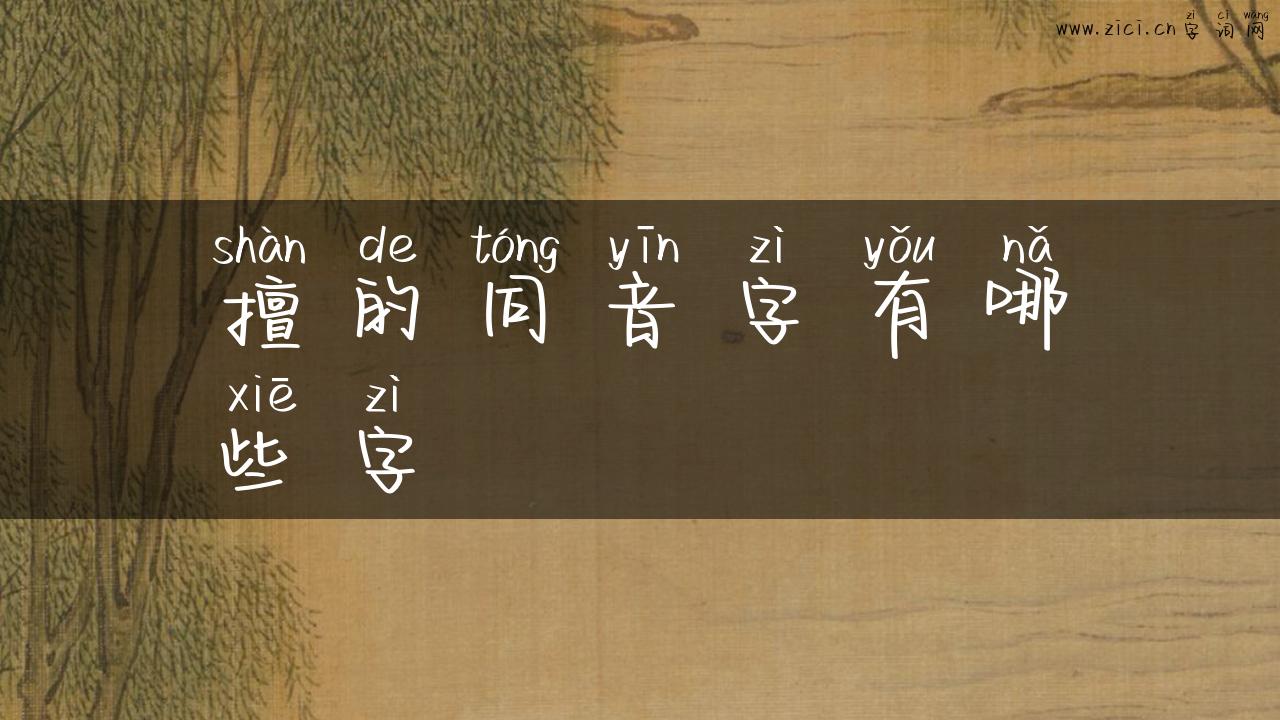 zì cí wǎng
www.zici.cn 字词网
shàn de tóng yīn zì yǒu nǎ
擅的同音字有哪
xiē zì
些字